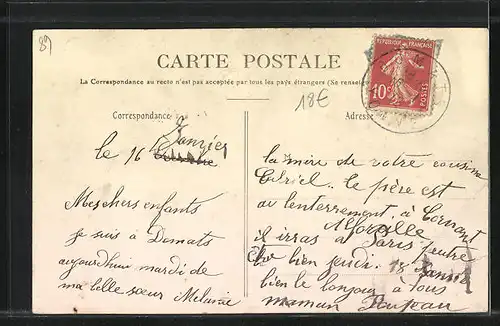 89
CARTE POSTALE
La Correspondance au recto n'est pas acceptée par tous les pays étrangers (Se renseigner
REPUBLIQUE FRANÇAISE
10c
POSTES
18€
Correspondance
Adresse
Janvier
le 16
Mes chers enfants
je suis à Domats
aujourdhui mardi de
ma belle sœur Mélanie
la mère de votre cousine
le père est
a lenterrement, à
il irras a Paris peutre
bien jeudi. 18 Janvier
bien le bonjour à tous
maman